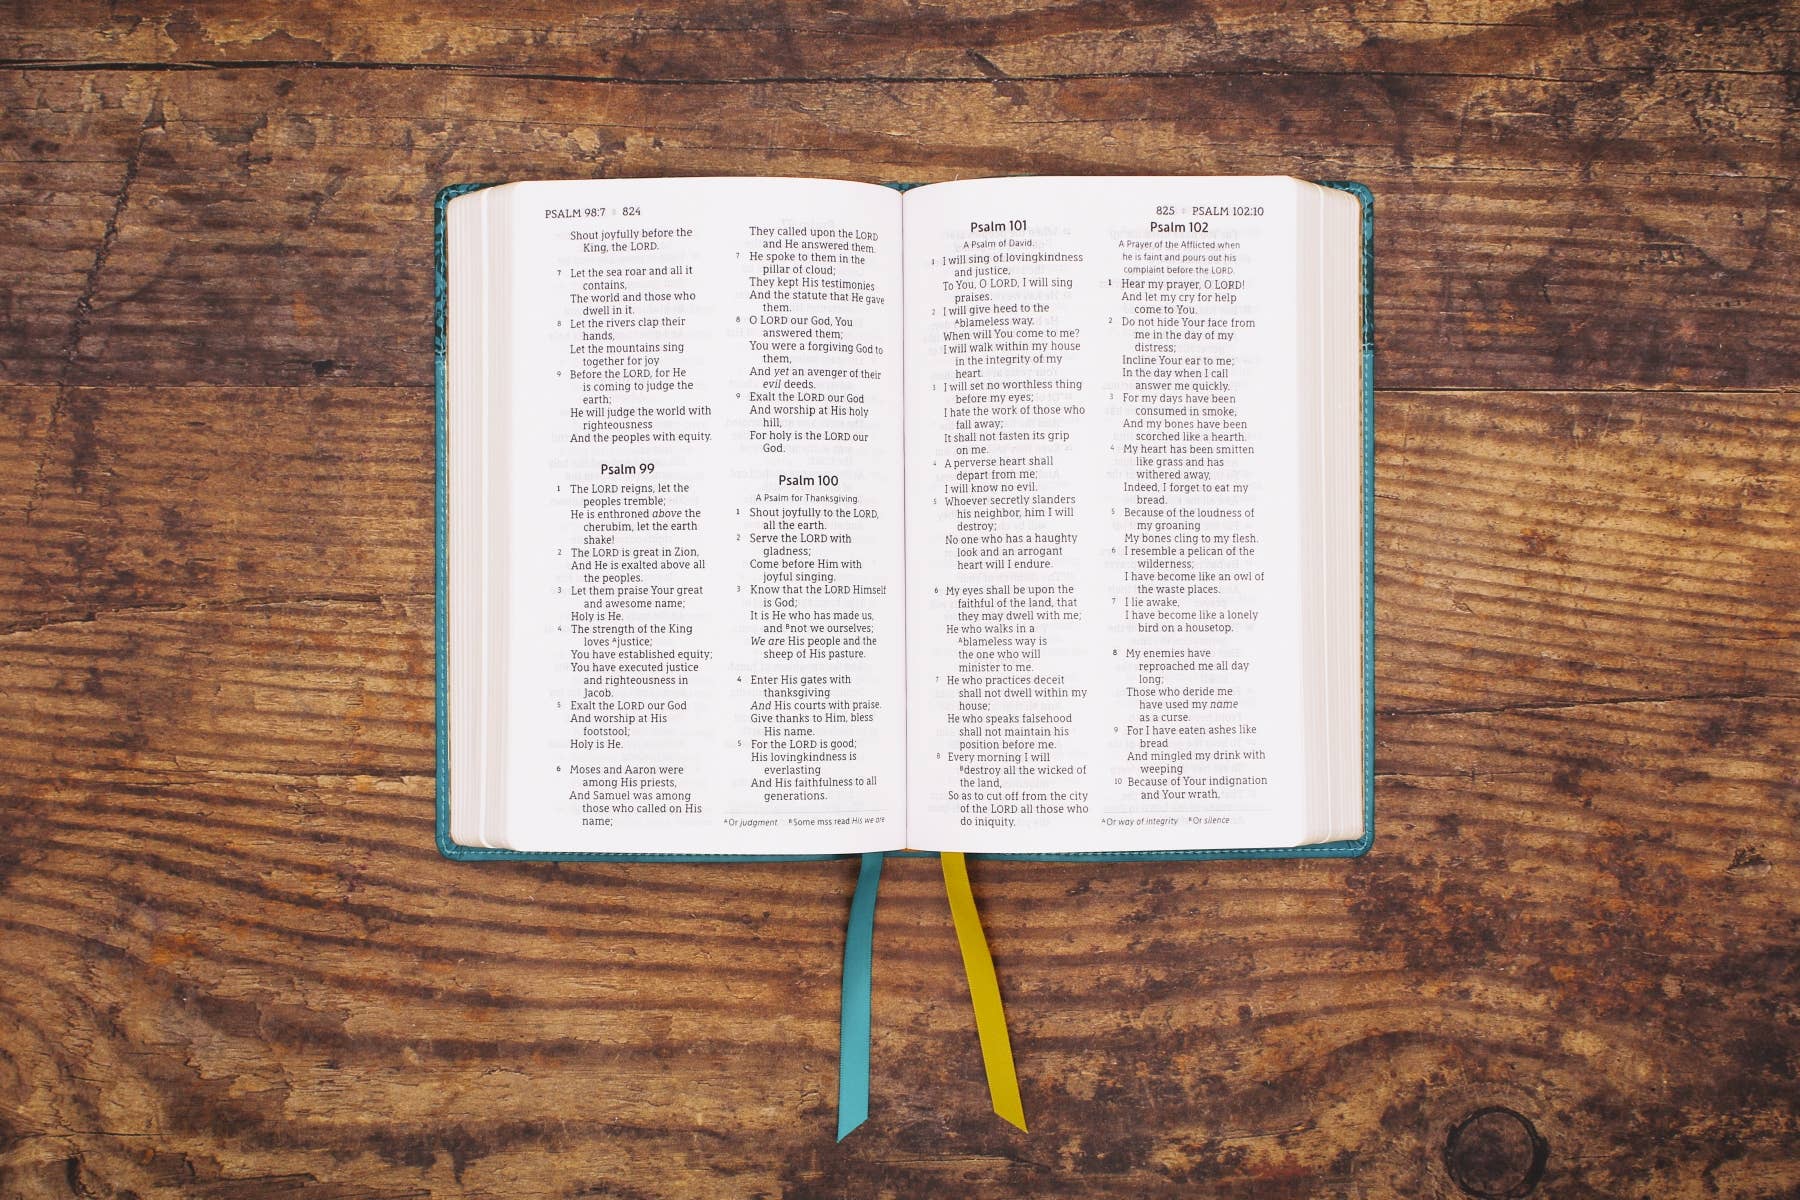 PSALM 98:7 824
Shout joyfully before the
King, the LORD.
7 Let the sea roar and all it
contains,
The world and those who
dwell in it.
8 Let the rivers clap their
hands,
Let the mountains sing
together for joy
9 Before the LORD, for He
is coming to judge the
earth;
He will judge the world with
righteousness
And the peoples with equity.
Psalm 99
1 The LORD reigns, let the
peoples tremble;
He is enthroned above the
cherubim, let the earth
shake!
2 The LORD is great in Zion,
And He is exalted above all
the peoples.
3 Let them praise Your great
and awesome name;
Holy is He.
4 The strength of the King
loves ᴬjustice;
You have established equity;
You have executed justice
and righteousness in
Jacob.
5 Exalt the LORD our God
And worship at His
footstool;
Holy is He.
6 Moses and Aaron were
among His priests,
And Samuel was among
those who called on His
name;
They called upon the LORD
and He answered them.
7 He spoke to them in the
pillar of cloud;
They kept His testimonies
And the statute that He gave
them.
8 O LORD our God, You
answered them;
You were a forgiving God to
them,
And yet an avenger of their
evil deeds.
9 Exalt the LORD our God
And worship at His holy
hill,
For holy is the LORD our
God.
Psalm 100
A Psalm for Thanksgiving.
1 Shout joyfully to the LORD,
all the earth.
2 Serve the LORD with
gladness;
Come before Him with
joyful singing.
3 Know that the LORD Himself
is God;
It is He who has made us,
and ᴮnot we ourselves;
We are His people and the
sheep of His pasture.
4 Enter His gates with
thanksgiving
And His courts with praise.
Give thanks to Him, bless
His name.
5 For the LORD is good;
His lovingkindness is
everlasting
And His faithfulness to all
generations.
ᴬOr judgment ᴮSome mss read His we are
825 PSALM 102:10
Psalm 101
A Psalm of David.
1 I will sing of lovingkindness
and justice,
To You, O LORD, I will sing
praises.
2 I will give heed to the
ᴬblameless way.
When will You come to me?
I will walk within my house
in the integrity of my
heart.
3 I will set no worthless thing
before my eyes;
I hate the work of those who
fall away;
It shall not fasten its grip
on me.
4 A perverse heart shall
depart from me;
I will know no evil.
5 Whoever secretly slanders
his neighbor, him I will
destroy;
No one who has a haughty
look and an arrogant
heart will I endure.
6 My eyes shall be upon the
faithful of the land, that
they may dwell with me;
He who walks in a
ᴬblameless way is
the one who will
minister to me.
7 He who practices deceit
shall not dwell within my
house;
He who speaks falsehood
shall not maintain his
position before me.
8 Every morning I will
ᴮdestroy all the wicked of
the land,
So as to cut off from the city
of the LORD all those who
do iniquity.
Psalm 102
A Prayer of the Afflicted when
he is faint and pours out his
complaint before the LORD.
1 Hear my prayer, O LORD!
And let my cry for help
come to You.
2 Do not hide Your face from
me in the day of my
distress;
Incline Your ear to me;
In the day when I call
answer me quickly.
3 For my days have been
consumed in smoke,
And my bones have been
scorched like a hearth.
4 My heart has been smitten
like grass and has
withered away,
Indeed, I forget to eat my
bread.
5 Because of the loudness of
my groaning
My bones cling to my flesh.
6 I resemble a pelican of the
wilderness;
I have become like an owl of
the waste places.
7 I lie awake,
I have become like a lonely
bird on a housetop.
8 My enemies have
reproached me all day
long;
Those who deride me
have used my name
as a curse.
9 For I have eaten ashes like
bread
And mingled my drink with
weeping
10 Because of Your indignation
and Your wrath,
ᴬOr way of integrity ᴮOr silence